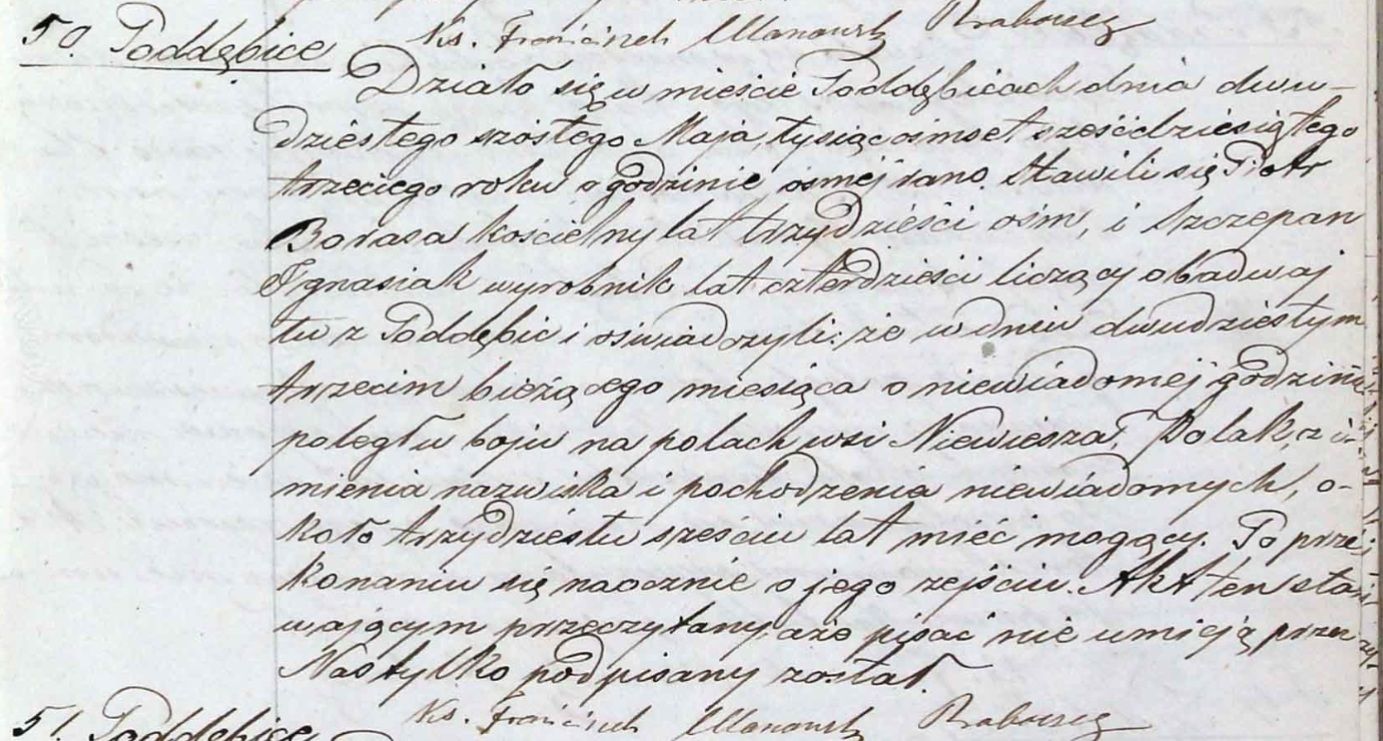 Ks. Franciszek Ulanowski Proboszcz
50. Poddębice
Działo się w mieście Poddębicach dnia dwu-
dziestego szóstego Maja, tysiąc ośmset sześćdziesiątego
trzeciego roku o godzinie ósmej rano. Stawili się Piotr
Barasa kościelny lat trzydzieści ośm, i Szczepan
Ignasiak wyrobnik lat czterdzieści liczący obadwaj
tu z Poddębic i oświadczyli: że w dniu dwudziestym
trzecim bieżącego miesiąca o niewiadomej godzinie
poległ w boju na polach wsi Niewiesza, Polak, z i-
mienia nazwiska i pochodzenia niewiadomych, o-
koło trzydziestu sześciu lat mieć mogący. Po prze-
konaniu się naocznie o jego zejściu. Akt ten stawi-
wającym przeczytany, a że pisać nie umieją przez
Nas tylko podpisany został.
Ks. Franciszek Ulanowski Proboszcz
51. Poddębice